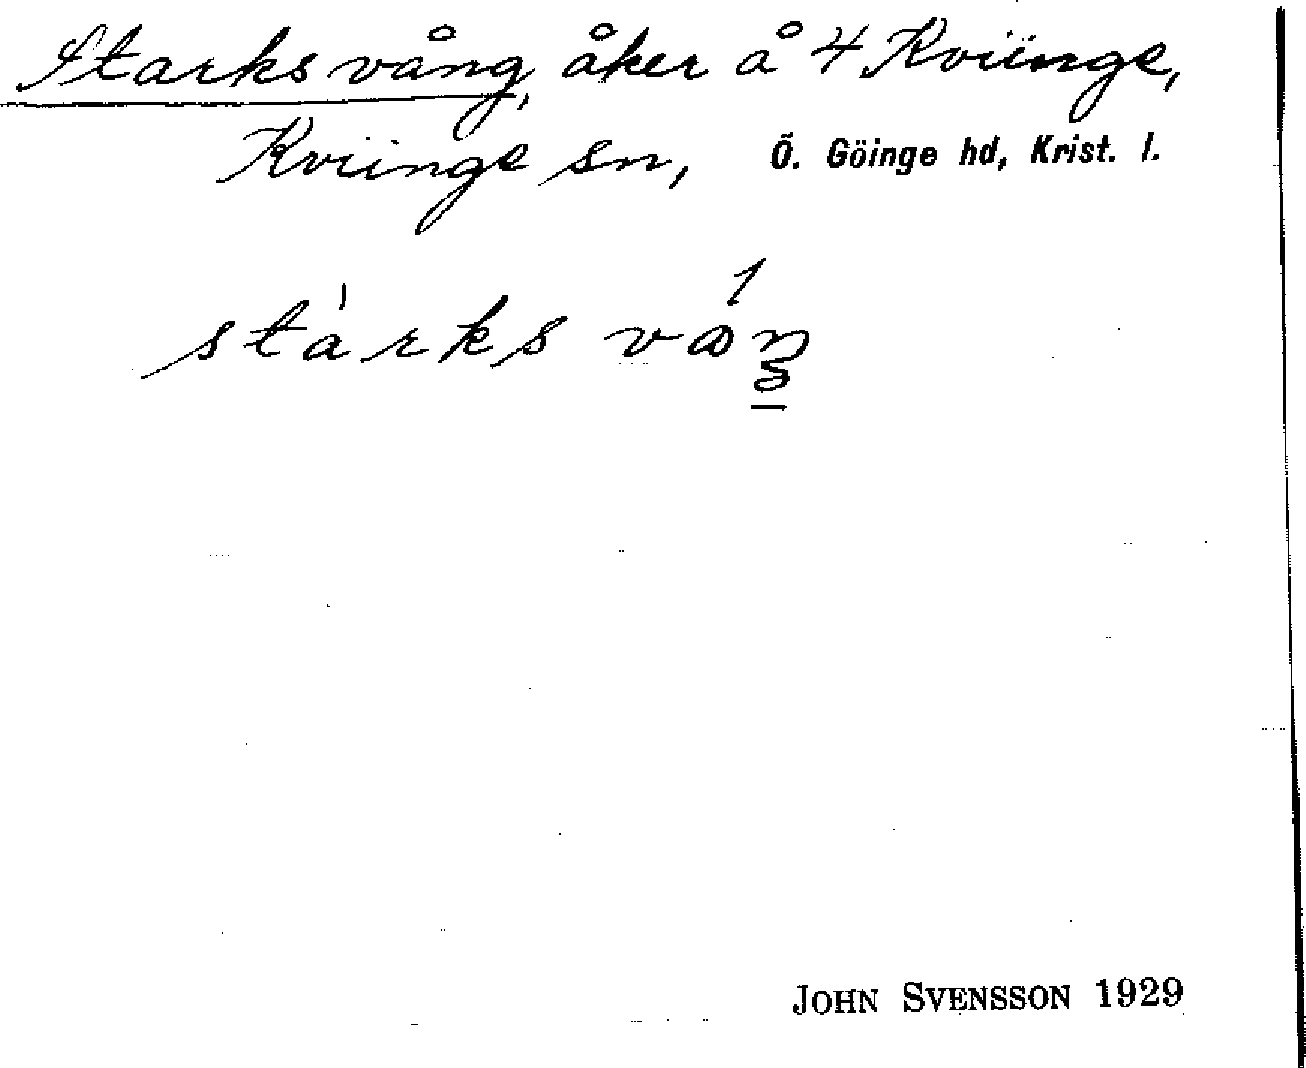 Starks vång, åker å 4 Kviinge,
Kviinge sn, Ö. Göinge hd, Krist. l.
starks
JOHN SVENSSON 1929